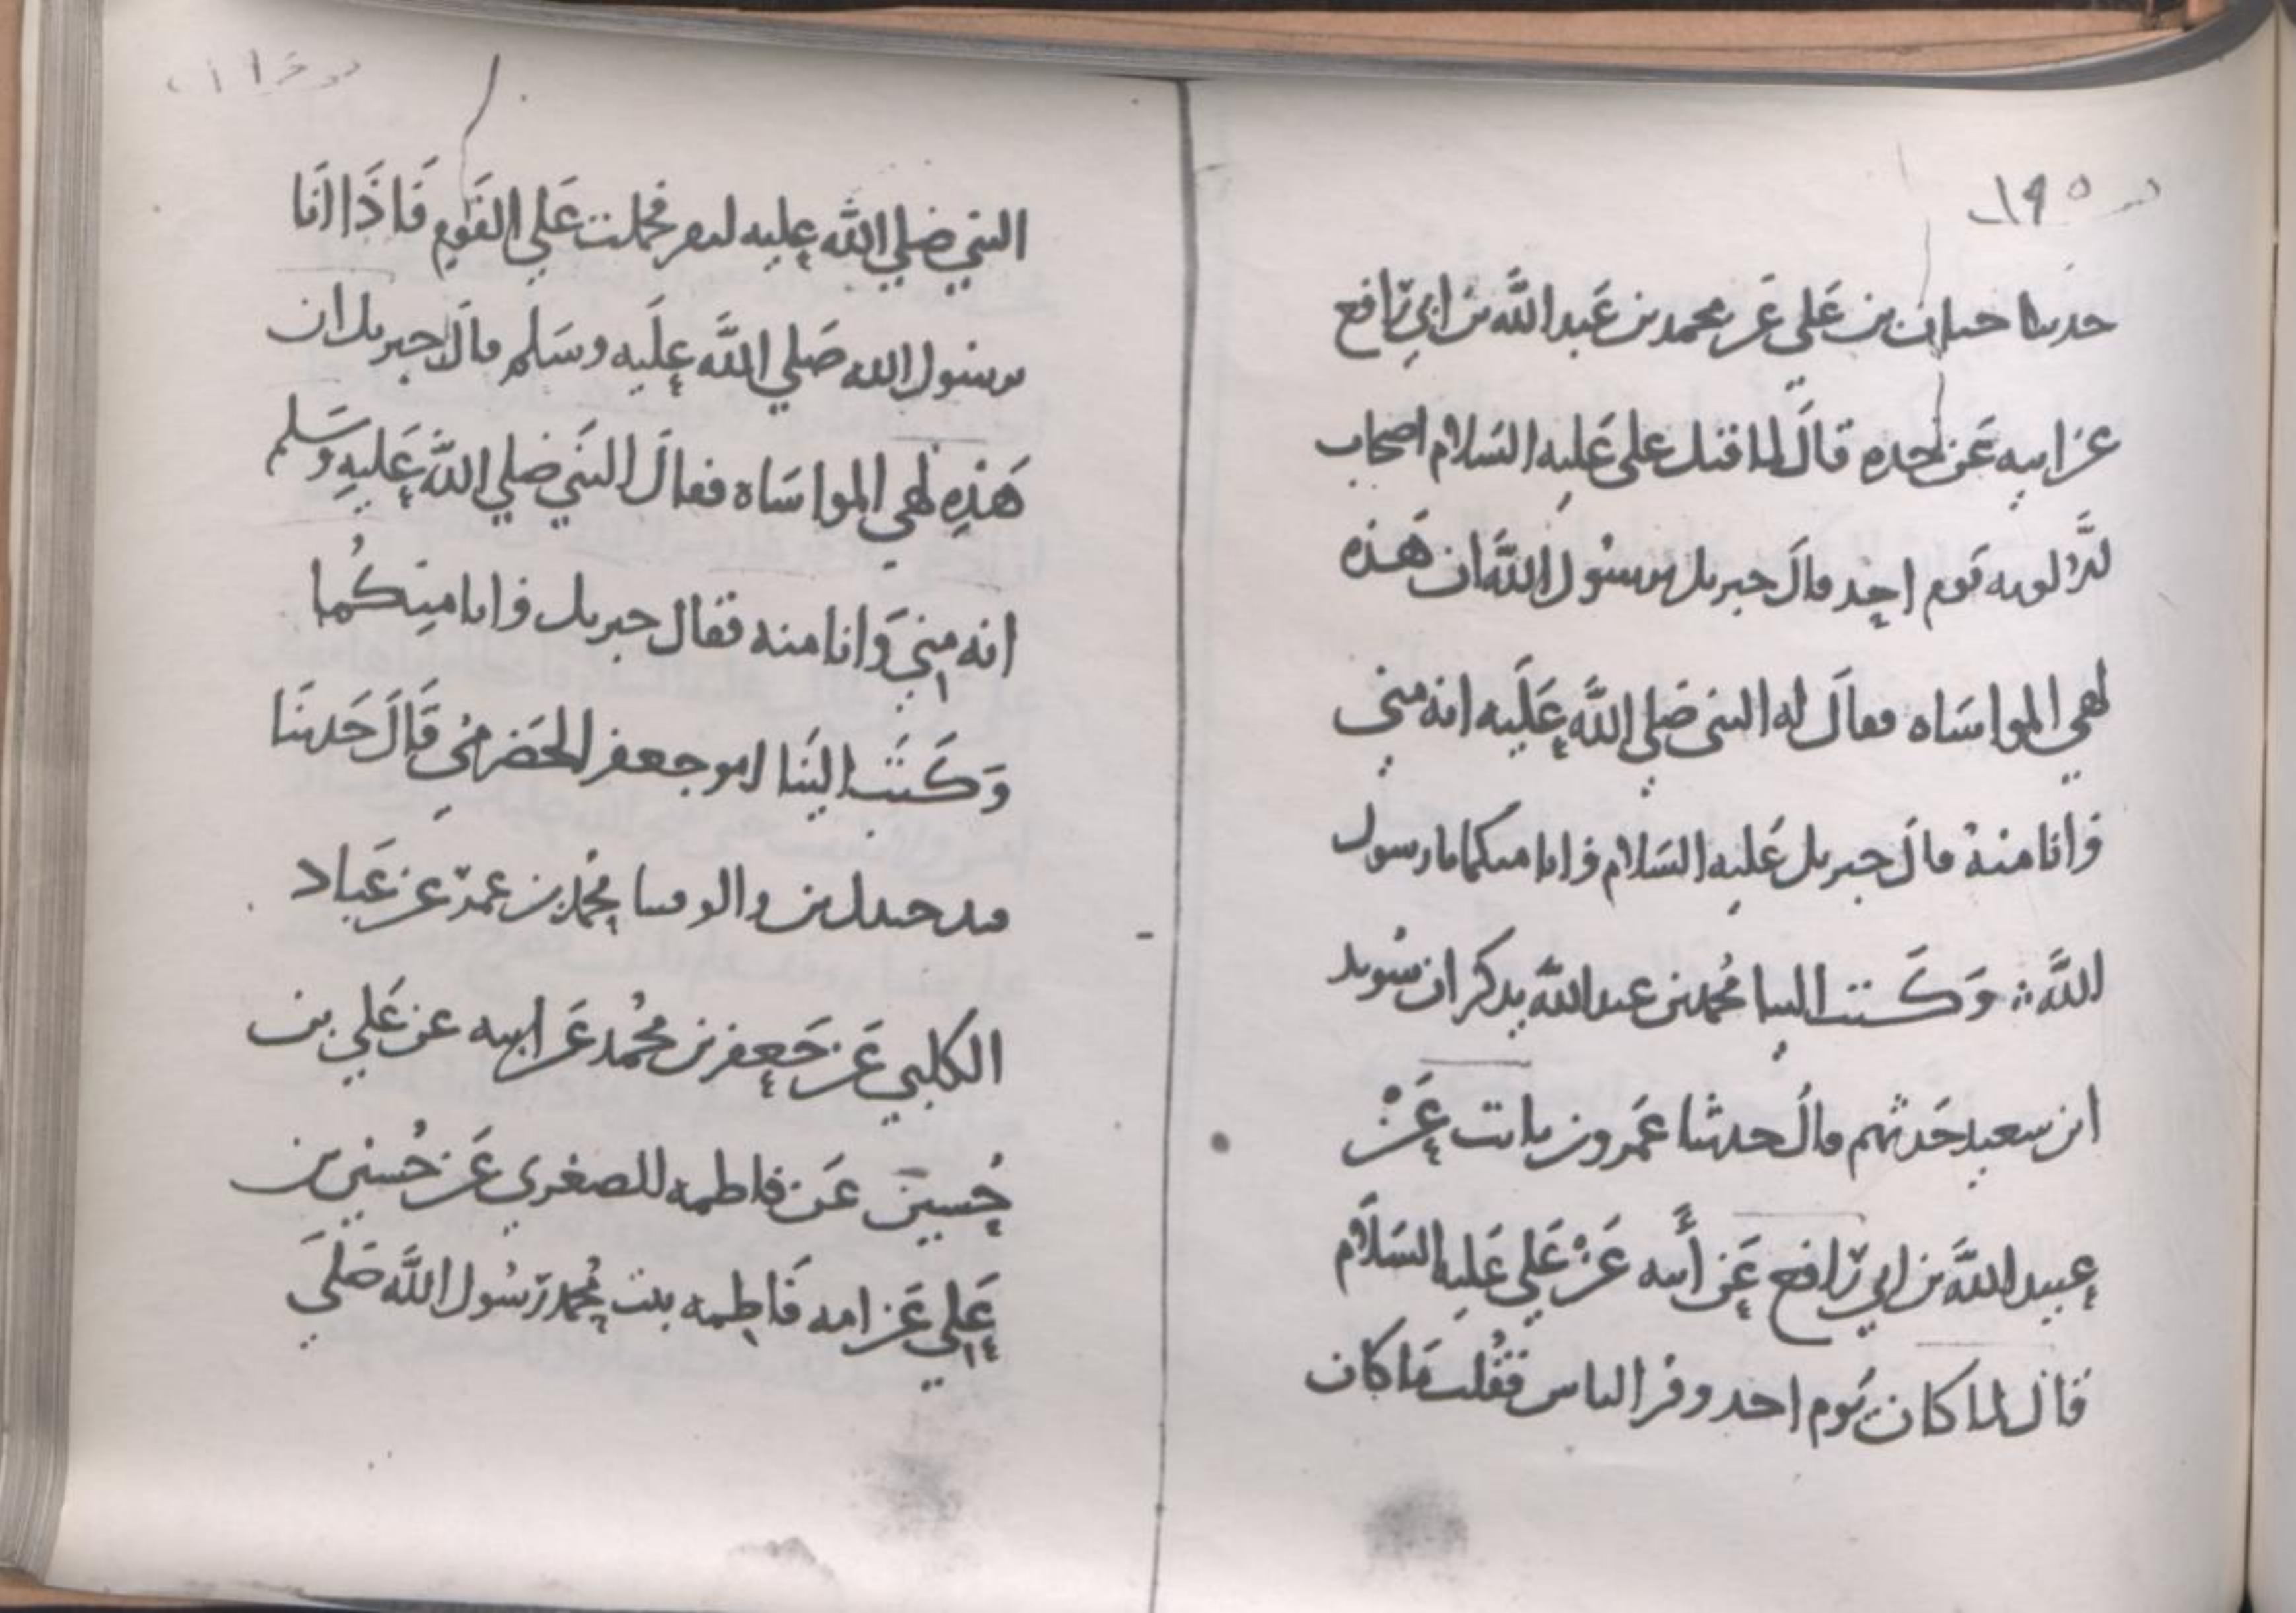 ١٩٥
حدثنا حبان بن علي عن محمد بن عبد الله بن ابي رافع
عن ابيه عن جده قال لما قتل علي عليه السلام اصحاب
الالويه يوم احد قال جبريل يرسول الله ان هذه
لهي المواساه فقال له النبي صلي الله عليه انه مني
وانا منه قال جبريل عليه السلام وانا منكما يا رسول
الله ؞ وكتب الينا محمد بن عبد الله يذكر ان سويد
ابن سعيد حدثهم قال حدثنا عمرو بن ثابت عن
عبيد الله بن ابي رافع عن أبيه عن علي عليه السلام
قال لما كان يوم احد وفر الناس فقلت ما كان
النبي صلي الله عليه ليفر فحملت علي القوم فاذا انا
برسول الله صلي الله عليه وسلم قال جبريل ان
هذه لهي المواساه فقال النبي صلي الله عليه وسلم
انه مني وانا منه فقال جبريل وانا منكما
وكتب الينا ابو جعفر الحضرمي قال حدثنا
جندل بن والق محمد بن عمر عن عباد
الكلبي عن جعفر بن محمد عن ابيه عن علي بن
حسين عن فاطمه الصغري عن حسين بن
علي عن امه فاطمه بنت محمد رسول الله صلي